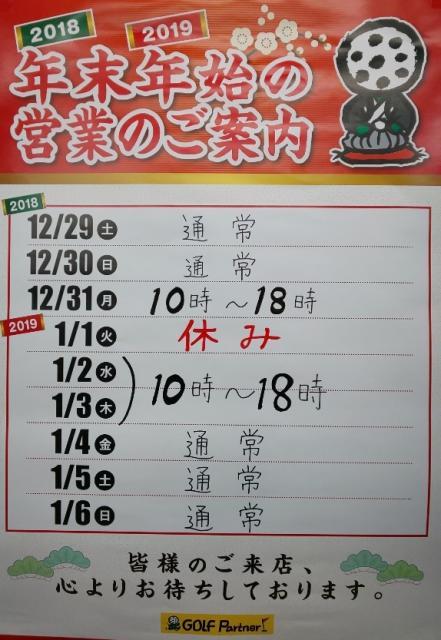 2018
2019
年末年始の
営業のご案内
2018
12/29 土 通常
12/30 日 通常
12/31 月 10時～18時
2019
1/1 火 休み
1/2 水
10時～18時
1/3 木
1/4 金 通常
1/5 土 通常
1/6 日 通常
皆様のご来店、
心よりお待ちしております。
GOLF Partner